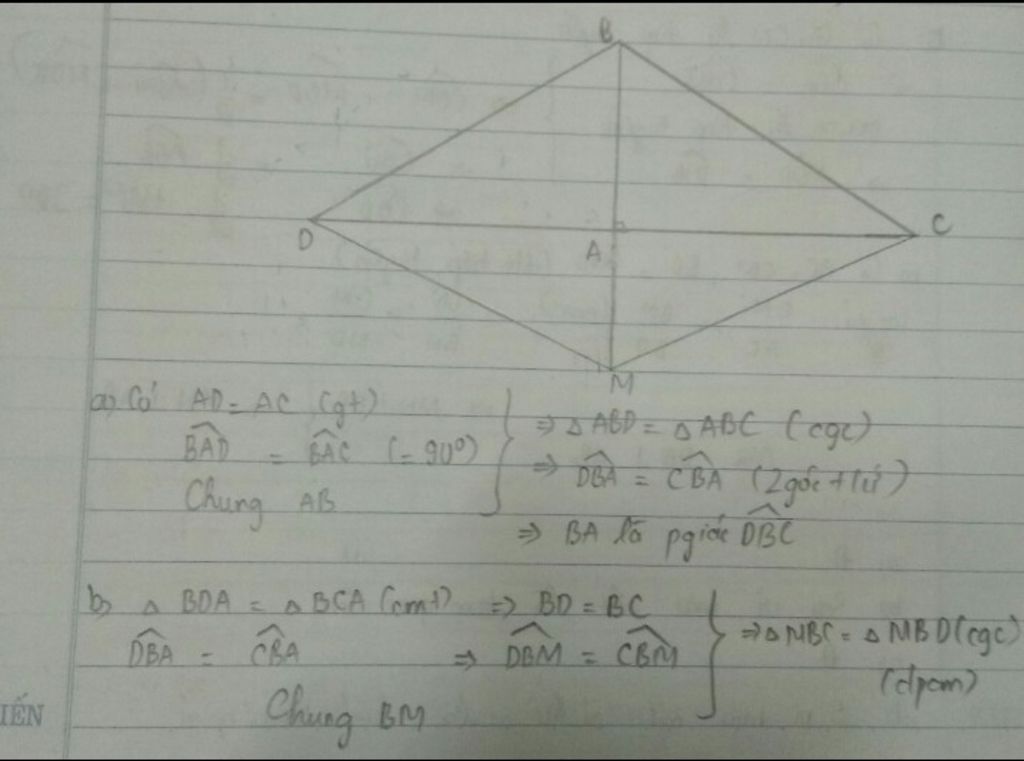 B
D
A
C
M
a) Có AD = AC (gt)
BAD̂ = BAĈ (= 90°)
Chung AB
⇒ △ABD = △ABC (cgc)
⇒ DBÂ = CBÂ (2 góc tứ)
⇒ BA là pgiác DBĈ
b) △BDA = △BCA (cmt) ⇒ BD = BC
DBÂ = CBÂ ⇒ DBM̂ = CBM̂
Chung BM
⇒ △MBC = △MBD (cgc)
(đpcm)
IẾN